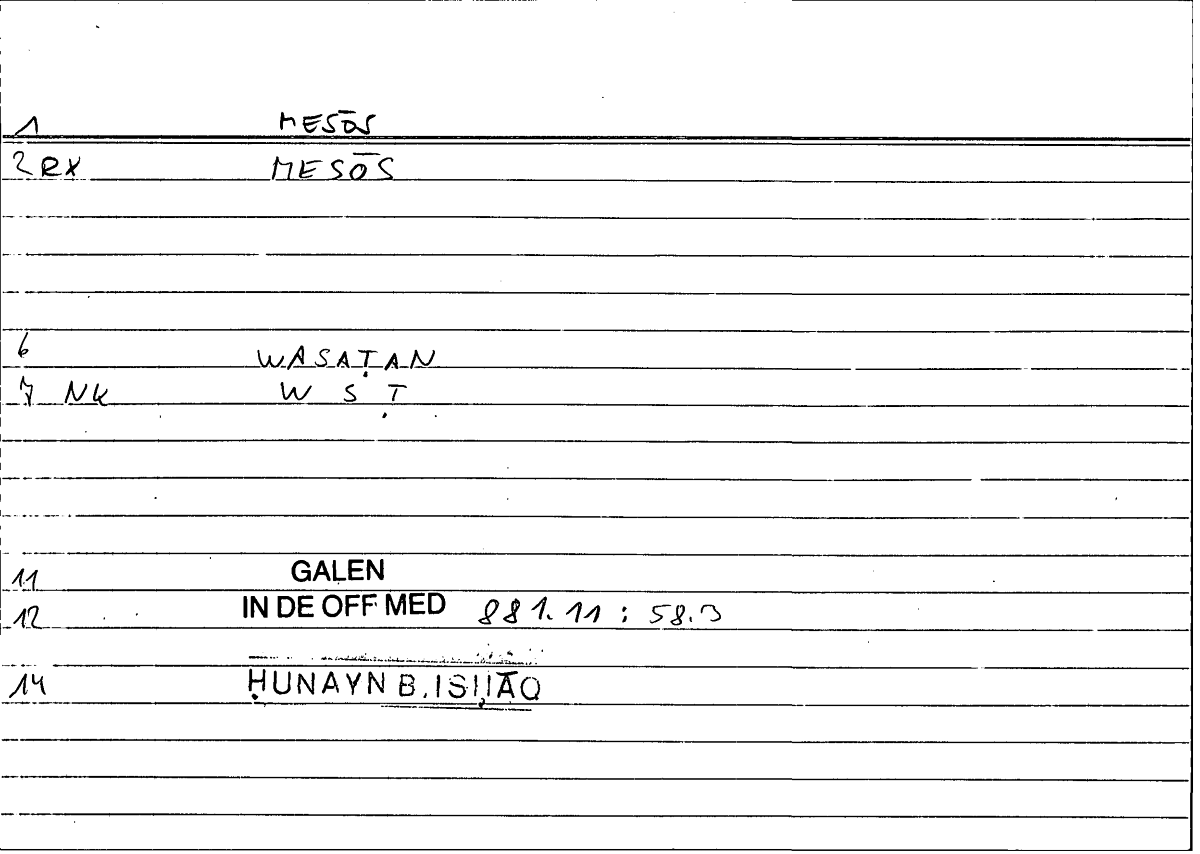 1 MESŌS
2 RX MESŌS
6 WASAṬAN
7 NK W S Ṭ
11 GALEN
12 IN DE OFF MED 881.11 : 58.3
14 ḤUNAYN B. ISḤĀQ